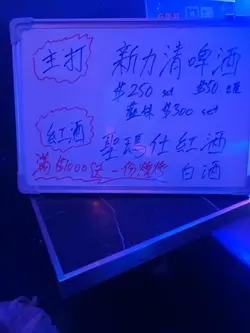 主打 新力清啤酒
$250 set $50
藍妹 $300 set
紅酒 聖瑪仕紅酒
滿$1000送一份燒烤 白酒